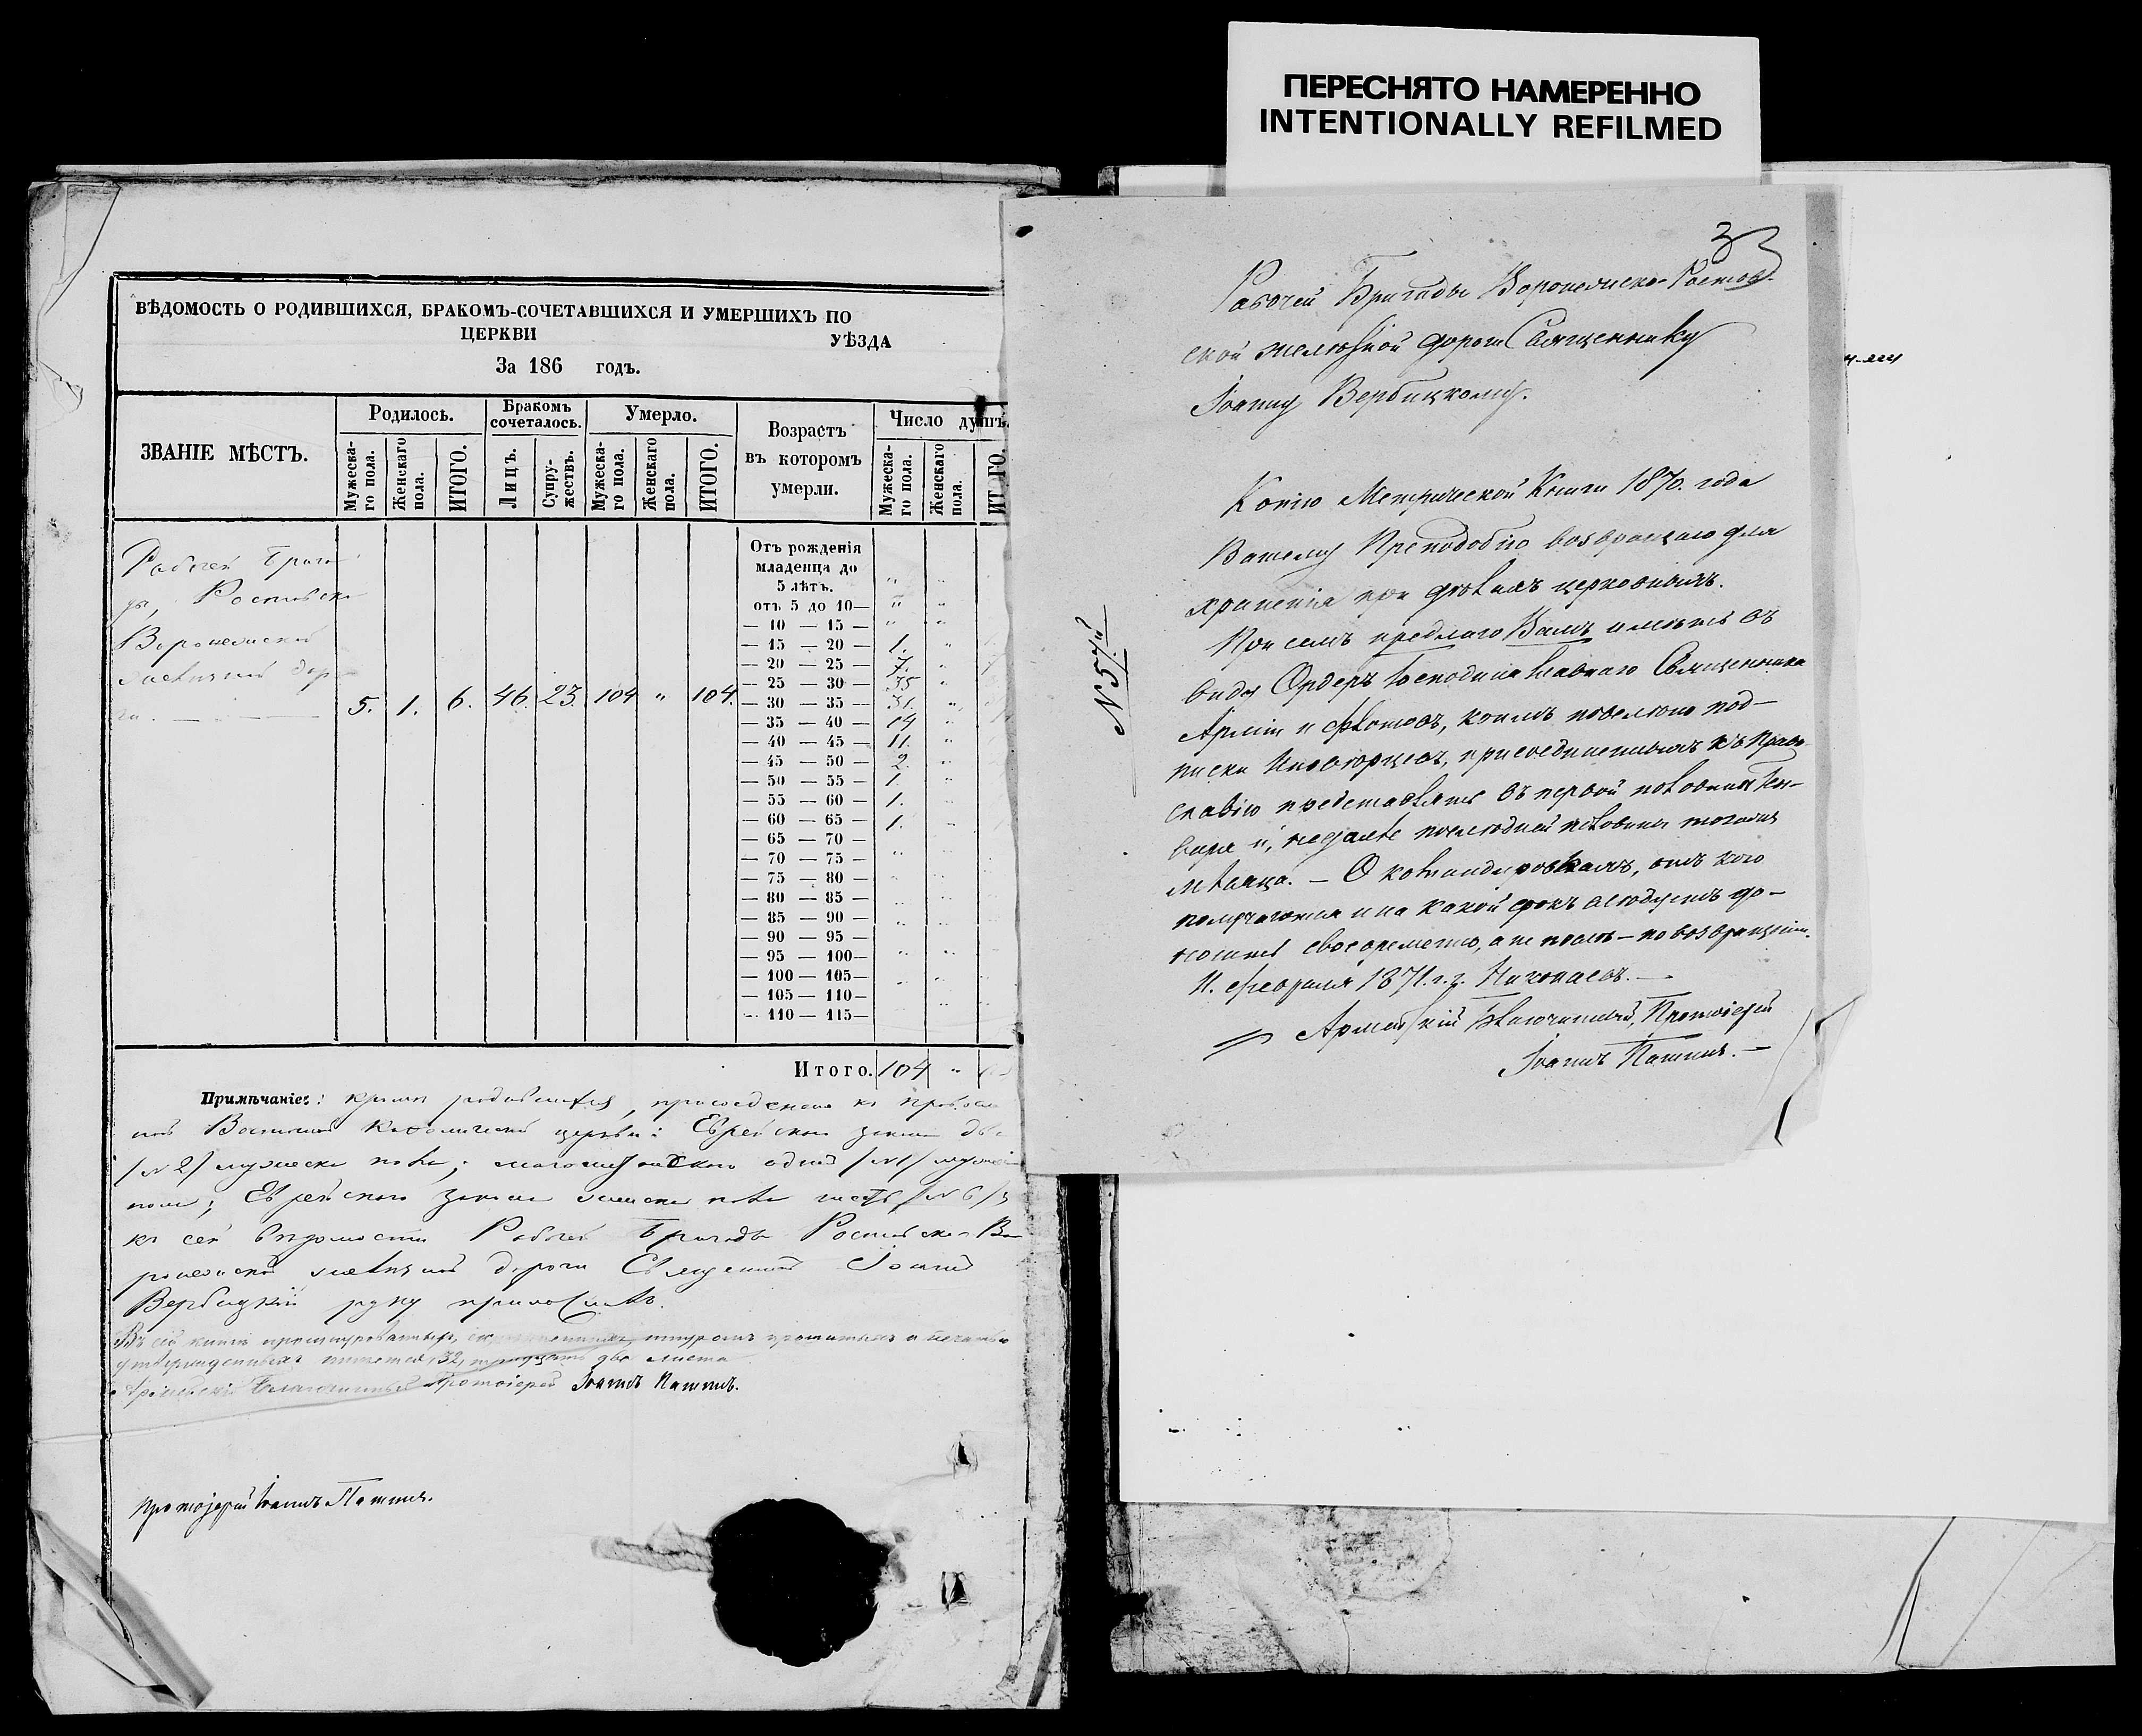 ПЕРЕСНЯТО НАМЕРЕННО
INTENTIONALLY REFILMED
ВѢДОМОСТЬ О РОДИВШИХСЯ, БРАКОМЪ-СОЧЕТАВШИХСЯ И УМЕРШИХЪ ПО
ЦЕРКВИ УѢЗДА
За 186 годъ.
ЗВАНІЕ МѢСТЪ.
Родилось.
Бракомъ сочеталось.
Умерло.
Возрастъ въ которомъ умерли.
Число душъ.
Мужеска-го пола.
Женскаго пола.
ИТОГО.
Лицъ.
Супру-жествъ.
Мужеска-го пола.
Женскаго пола.
ИТОГО.
Мужеска-го пола.
Женскаго пола.
ИТОГО.
Рабочей Брига
ды, Ростовско
Воронежской
желѣзной доро
ги. 5. 1. 6. 46. 23. 104 " 104.
Отъ рожденія
младенца до
5 лѣтъ. " "
отъ 5 до 10— " "
— 10 — 15 — " "
— 15 — 20 — 1. "
— 20 — 25 — 7. "
— 25 — 30 — 35 "
— 30 — 35 — 31. "
— 35 — 40 — 14 "
— 40 — 45 — 11. "
— 45 — 50 — 2. "
— 50 — 55 — 1. "
— 55 — 60 — 1. "
— 60 — 65 — 1. "
— 65 — 70 —
— 70 — 75 — " "
— 75 — 80 —
— 80 — 85 —
— 85 — 90 —
— 90 — 95 —
— 95 — 100—
— 100 — 105—
— 105 — 110—
— 110 — 115—
Итого. 104 "
Примѣчаніе: кромѣ родившихся, присоединено къ Православ
ной Восточной Каѳолической церкви: Еврейскаго закона два
/№ 2/ мужеска пола; магометанскаго одинъ /№ 1/
пола; Еврейскаго закона женска пола шесть /№ 6/
къ сей вѣдомости Рабочей Бригады Ростовско-Во
ронежской желѣзной дороги Священникъ Іоаннъ
Вербицкій руку приложилъ.
Въ сей книгѣ прошнурованныхъ, шнуромъ прошитыхъ и печатью
утвержденныхъ имѣется, 32, тридцать два листа
Армейскій Благочинный Протоіерей Іоаннъ
Протоіерей Іоаннъ
33
Рабочей Бригады Воронежско-Ростов-
ской желѣзной дороги Священнику
Іоанну Вербицкому.
№ 57й
Копію Метрической Книги 1870. года
Вашему Преподобію возвращаю для
храненія при дѣлахъ церковныхъ.
При семъ предлагаю Вамъ имѣть въ
виду Ордеръ Господина Главнаго Священника
Арміи и Флотовъ, коимъ повелѣно под-
писки Иновѣрцевъ, присоединенныхъ къ Право-
славію представлять въ первой половинѣ Ген-
варя и, не далѣе послѣдней половины тогожъ
мѣсяца. — О командировкахъ, отъ кого
получаются и на какой срокъ слѣдуетъ до-
носить своевременно, а не послѣ — по возвращеніи.
11. февраля 1871. г. г. Николаевъ. —
Армейскій Благочинный, Протоіерей
Іоаннъ